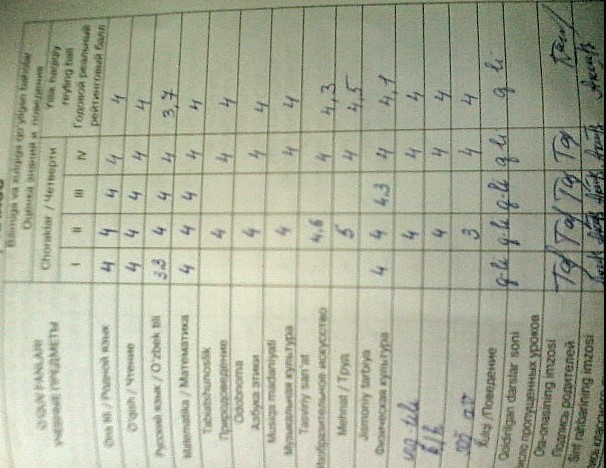 Bilimiga va xulqiga qo'yilgan baholar
Оценка знаний и поведения
O'QUV FANLARI
УЧЕБНЫЕ ПРЕДМЕТЫ
Choraklar / Четверти
Yillik haqiqiy reyting bali
Годовой реальный рейтинговый балл
I II III IV
Ona tili / Родной язык 4 4 4 4 4
O'qish / Чтение 4 4 4 4 4
Русский язык / O'zbek tili 3,3 4 4 4 3,7
Matematika / Математика 4 4 4 4 4
Tabiatshunoslik
Природоведение 4 4 4
Odobnoma
Азбука этики 4 4 4
Musiqa madaniyati
Музыкальная культура 4 4 4
Tasviriy san'at
Изобразительное искусство 4,6 4 4,3
Mehnat / Труд 5 4 4,5
Jismoniy tarbiya
Физическая культура 4 4 4,3 4 4,1
4 4 4
4 4 4
3 4 4
Xulqi /Поведение
Qoldirilgan darslar soni
Число пропущенных уроков
Ota-onasining imzosi
Подпись родителей
Sinf rahbarining imzosi